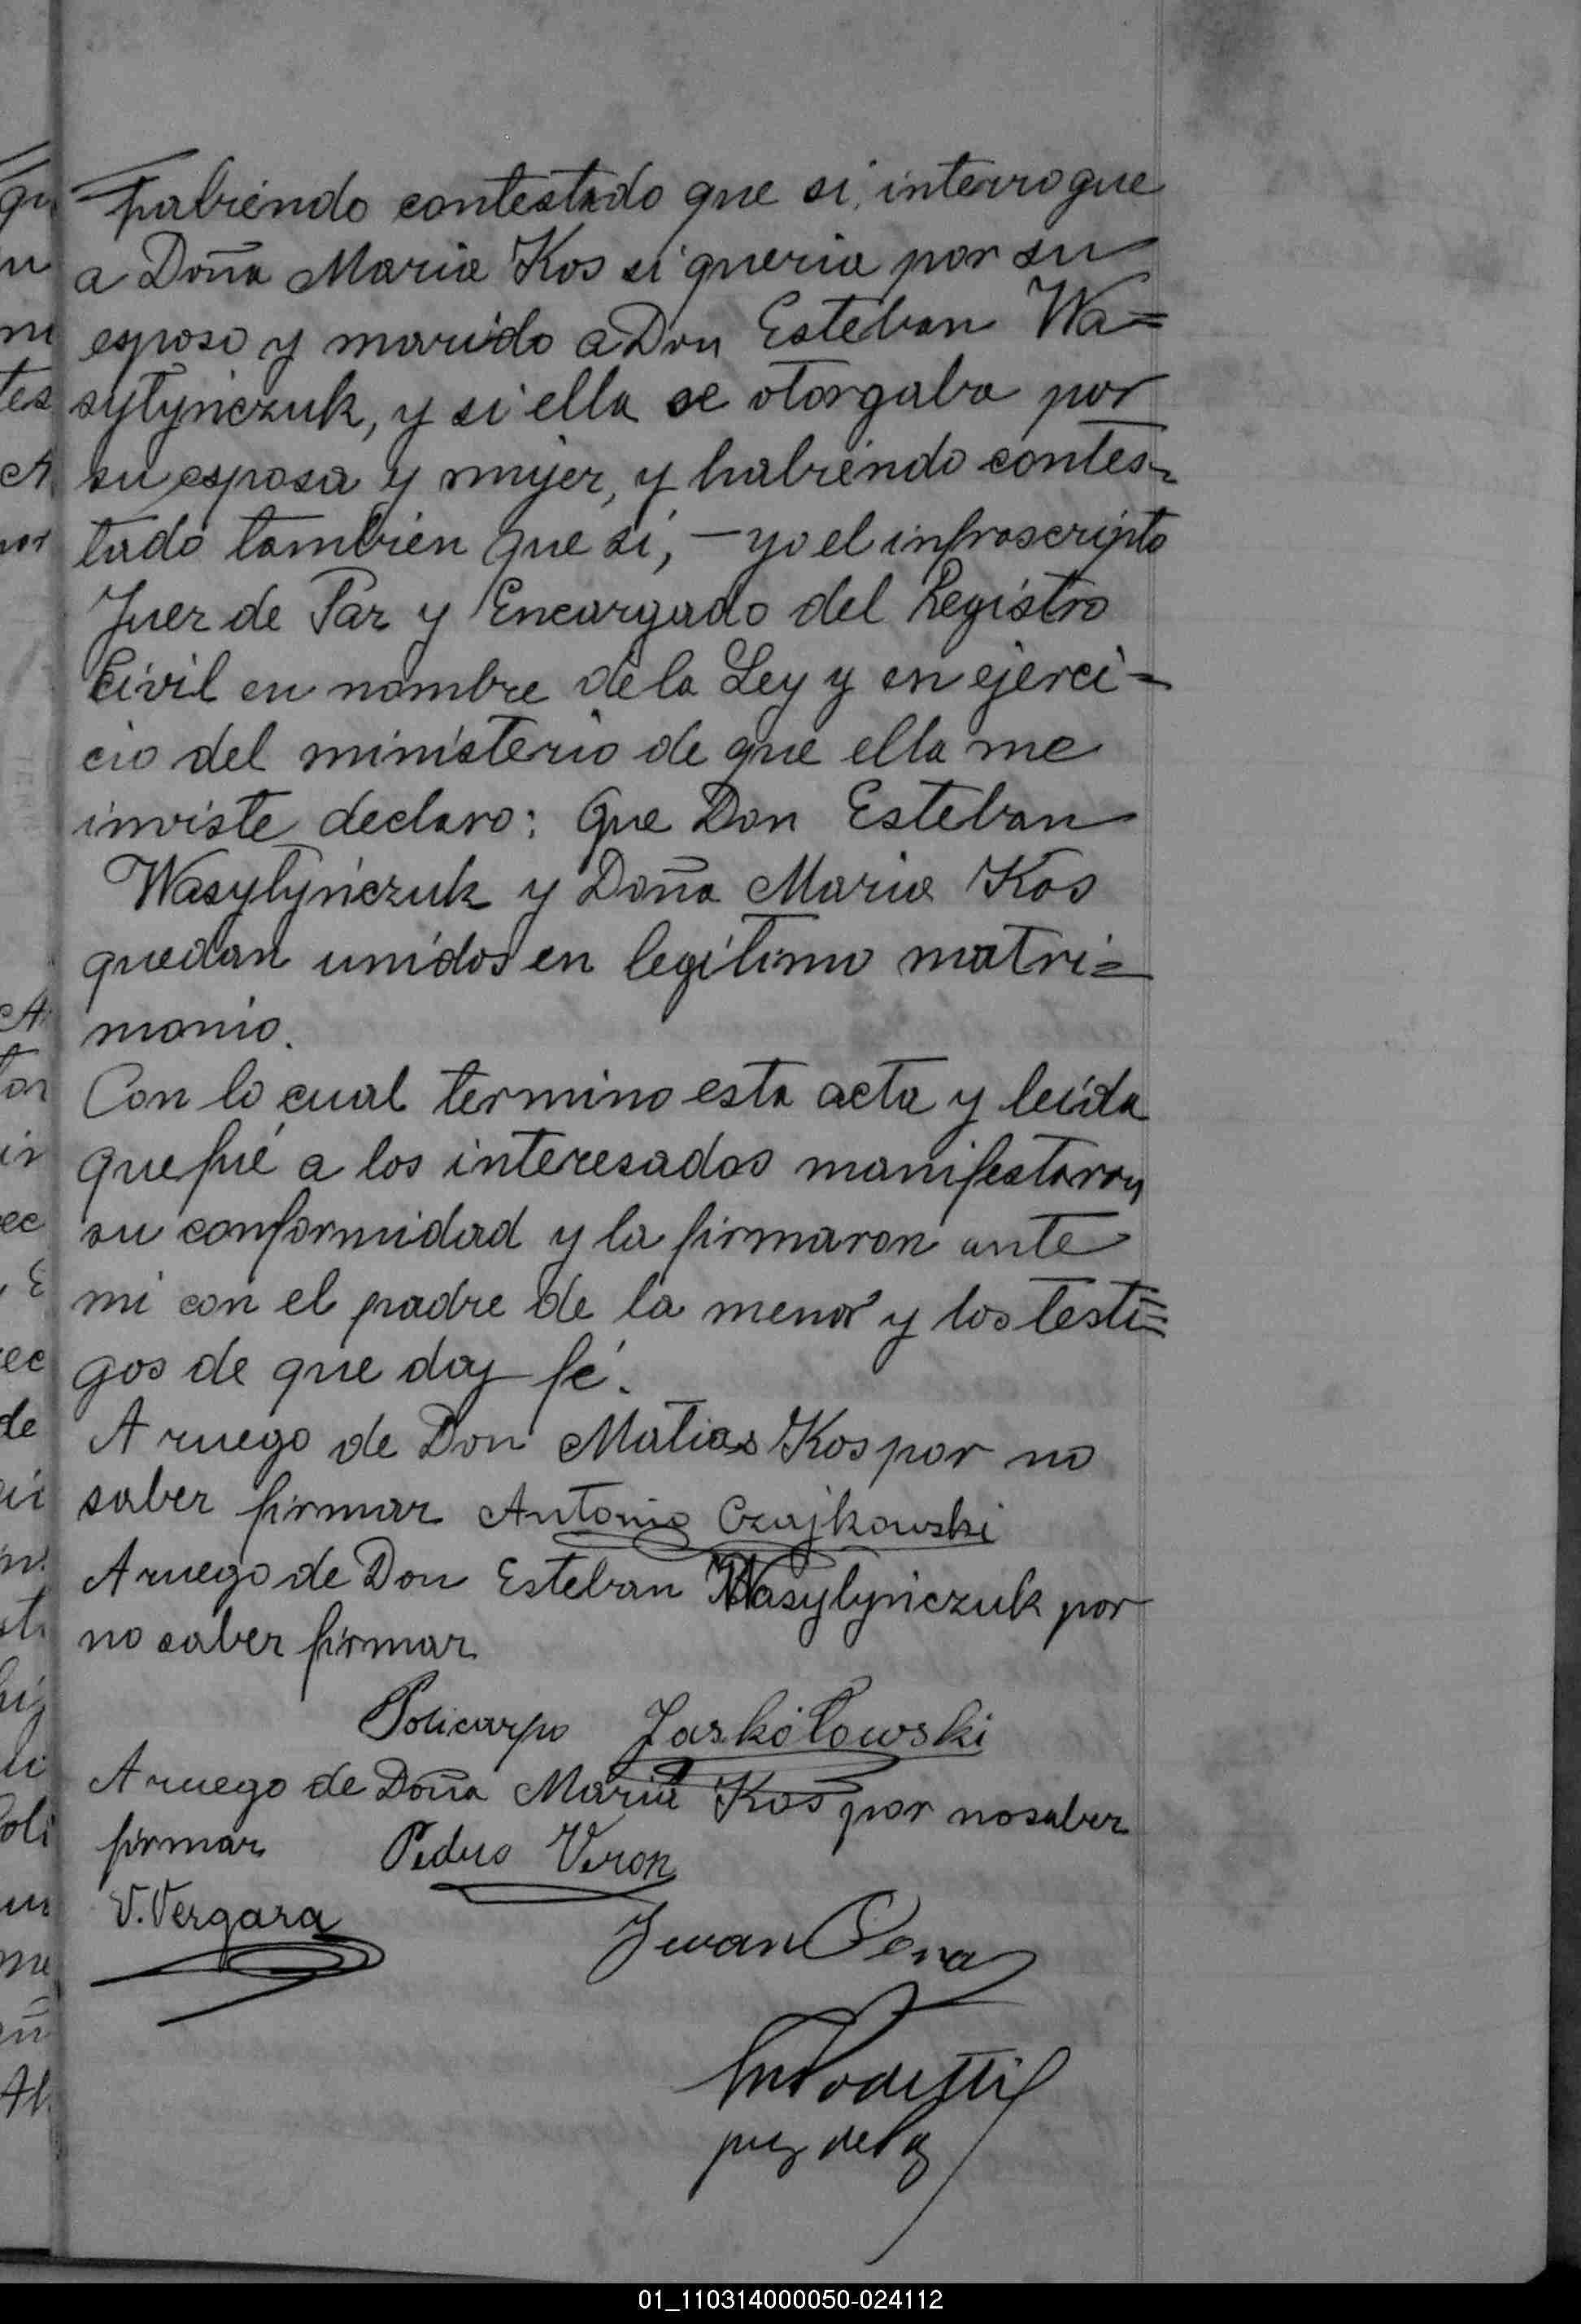 habiendo contestado que si, interrogue
a Doña Maria Kos si queria por su
esposo y marido a Don Esteban Wa=
sylyńczuk, y si ella se otorgaba por
su esposa y mujer, y habiendo contes-
tado tambien que si, — yo el infrascripto
Juez de Paz y Encargado del Registro
Civil en nombre de la Ley y en ejerci=
cio del ministerio de que ella me
inviste declaro: Que Don Esteban
Wasylyńczuk y Doña Maria Kos
quedan unidos en legítimo matri=
monio.
Con lo cual termino esta acta y leída
que fué a los interesados manifestaron
su conformidad y la firmaron ante
mi con el padre de la menor y los testi=
gos de que doy fé.
A ruego de Don Matias Kos por no
saber firmar Antonio Czajkowski
A ruego de Don Esteban Wasylyńczuk por
no saber firmar
Policarpo Jaskółowski
A ruego de Doña Maria Kos por no saber
firmar Pedro Veron
V. Vergara
Juan Pena
Podetti
juez de Paz
01_110314000050-024112